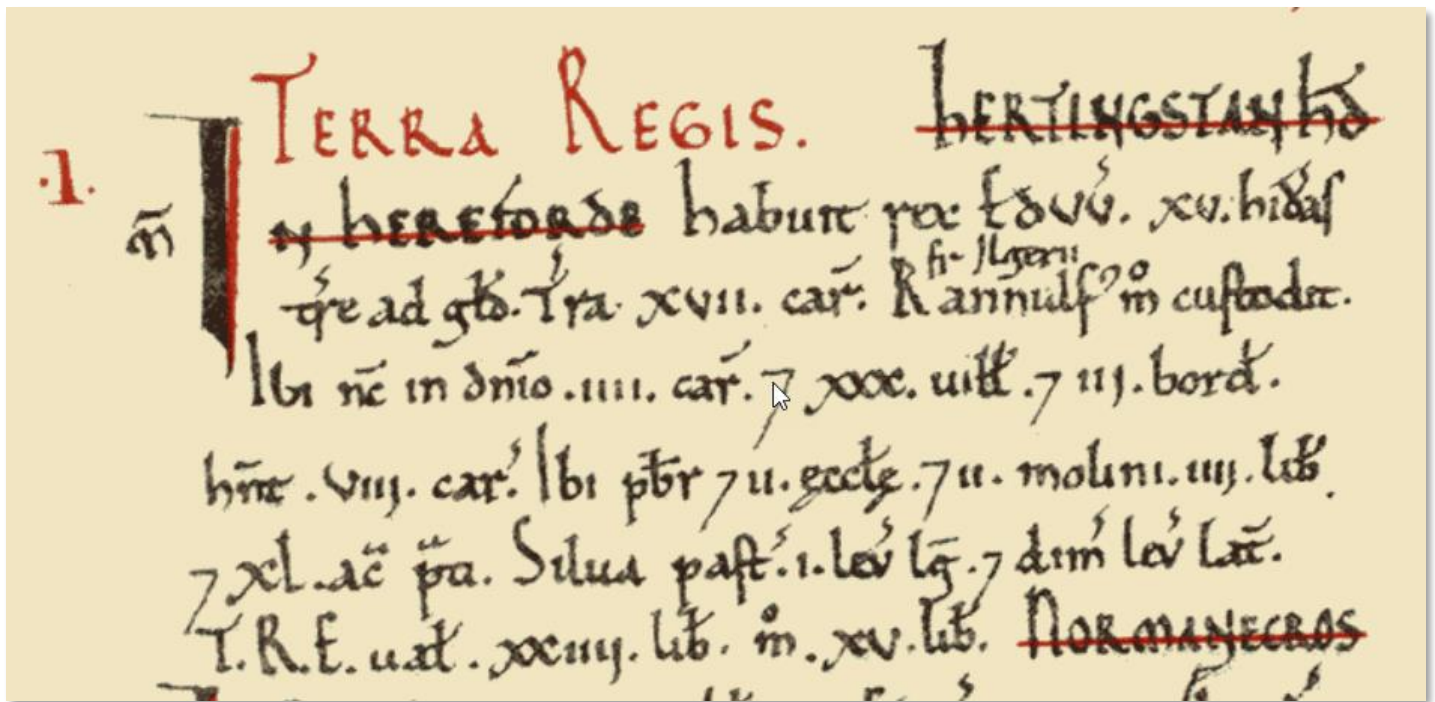 TERRA REGIS. HERTINGSTAN HD̄
.I. m̃ IN HEREFORDE habuit rex Edw'. xv. hidas
t'r̃e ad gld̃. T'ra xvii. car̃. Rannulf' fr̃ Ilgerii m° custodit.
Ibi nc̄ in dñio .iiii. car̃. ⁊ xxx. uilł. ⁊ iij. bord̃.
hñt .viij. car'. Ibi pƀr ⁊ ii. æccłę. ⁊ ii. molini. iiij. liƀ.
⁊ xl. ac̃ p̃ti. Silua past'. i. lev' lg̃. ⁊ dim' lev' lat̃.
T.R.E. uał. xxiiij. liƀ. m°. xv. liƀ. NORMANECROS